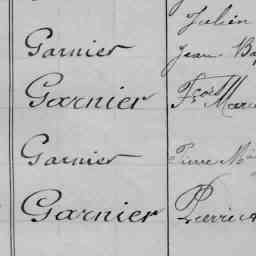 Julien
Garnier Jean Ba
Garnier Fçois Marie
Garnier Pierre M
Garnier Pierre